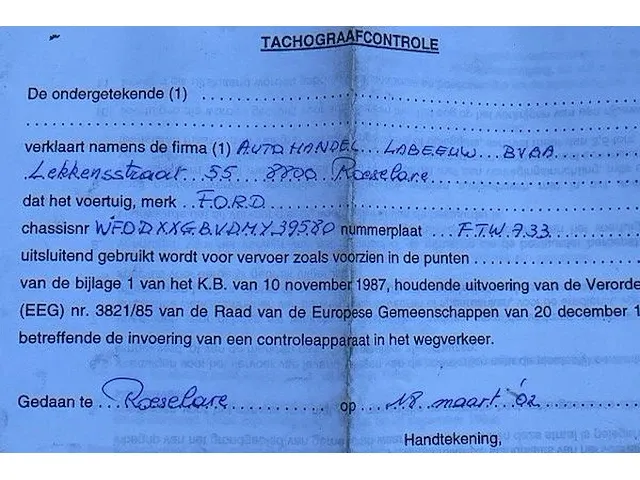 TACHOGRAAFCONTROLE
De ondergetekende (1)
verklaart namens de firma (1) AUTOHANDEL LABEEUW BVBA
Lekkensstraat 55 8800 Roeselare
dat het voertuig, merk FORD
chassisnr WFODXXGBVDMY39580 nummerplaat FTW733
uitsluitend gebruikt wordt voor vervoer zoals voorzien in de punten
van de bijlage 1 van het K.B. van 10 november 1987, houdende uitvoering van de Verorde
(EEG) nr. 3821/85 van de Raad van de Europese Gemeenschappen van 20 december 1
betreffende de invoering van een controleapparaat in het wegverkeer.
Gedaan te Roeselare op 18 maart '02
Handtekening,